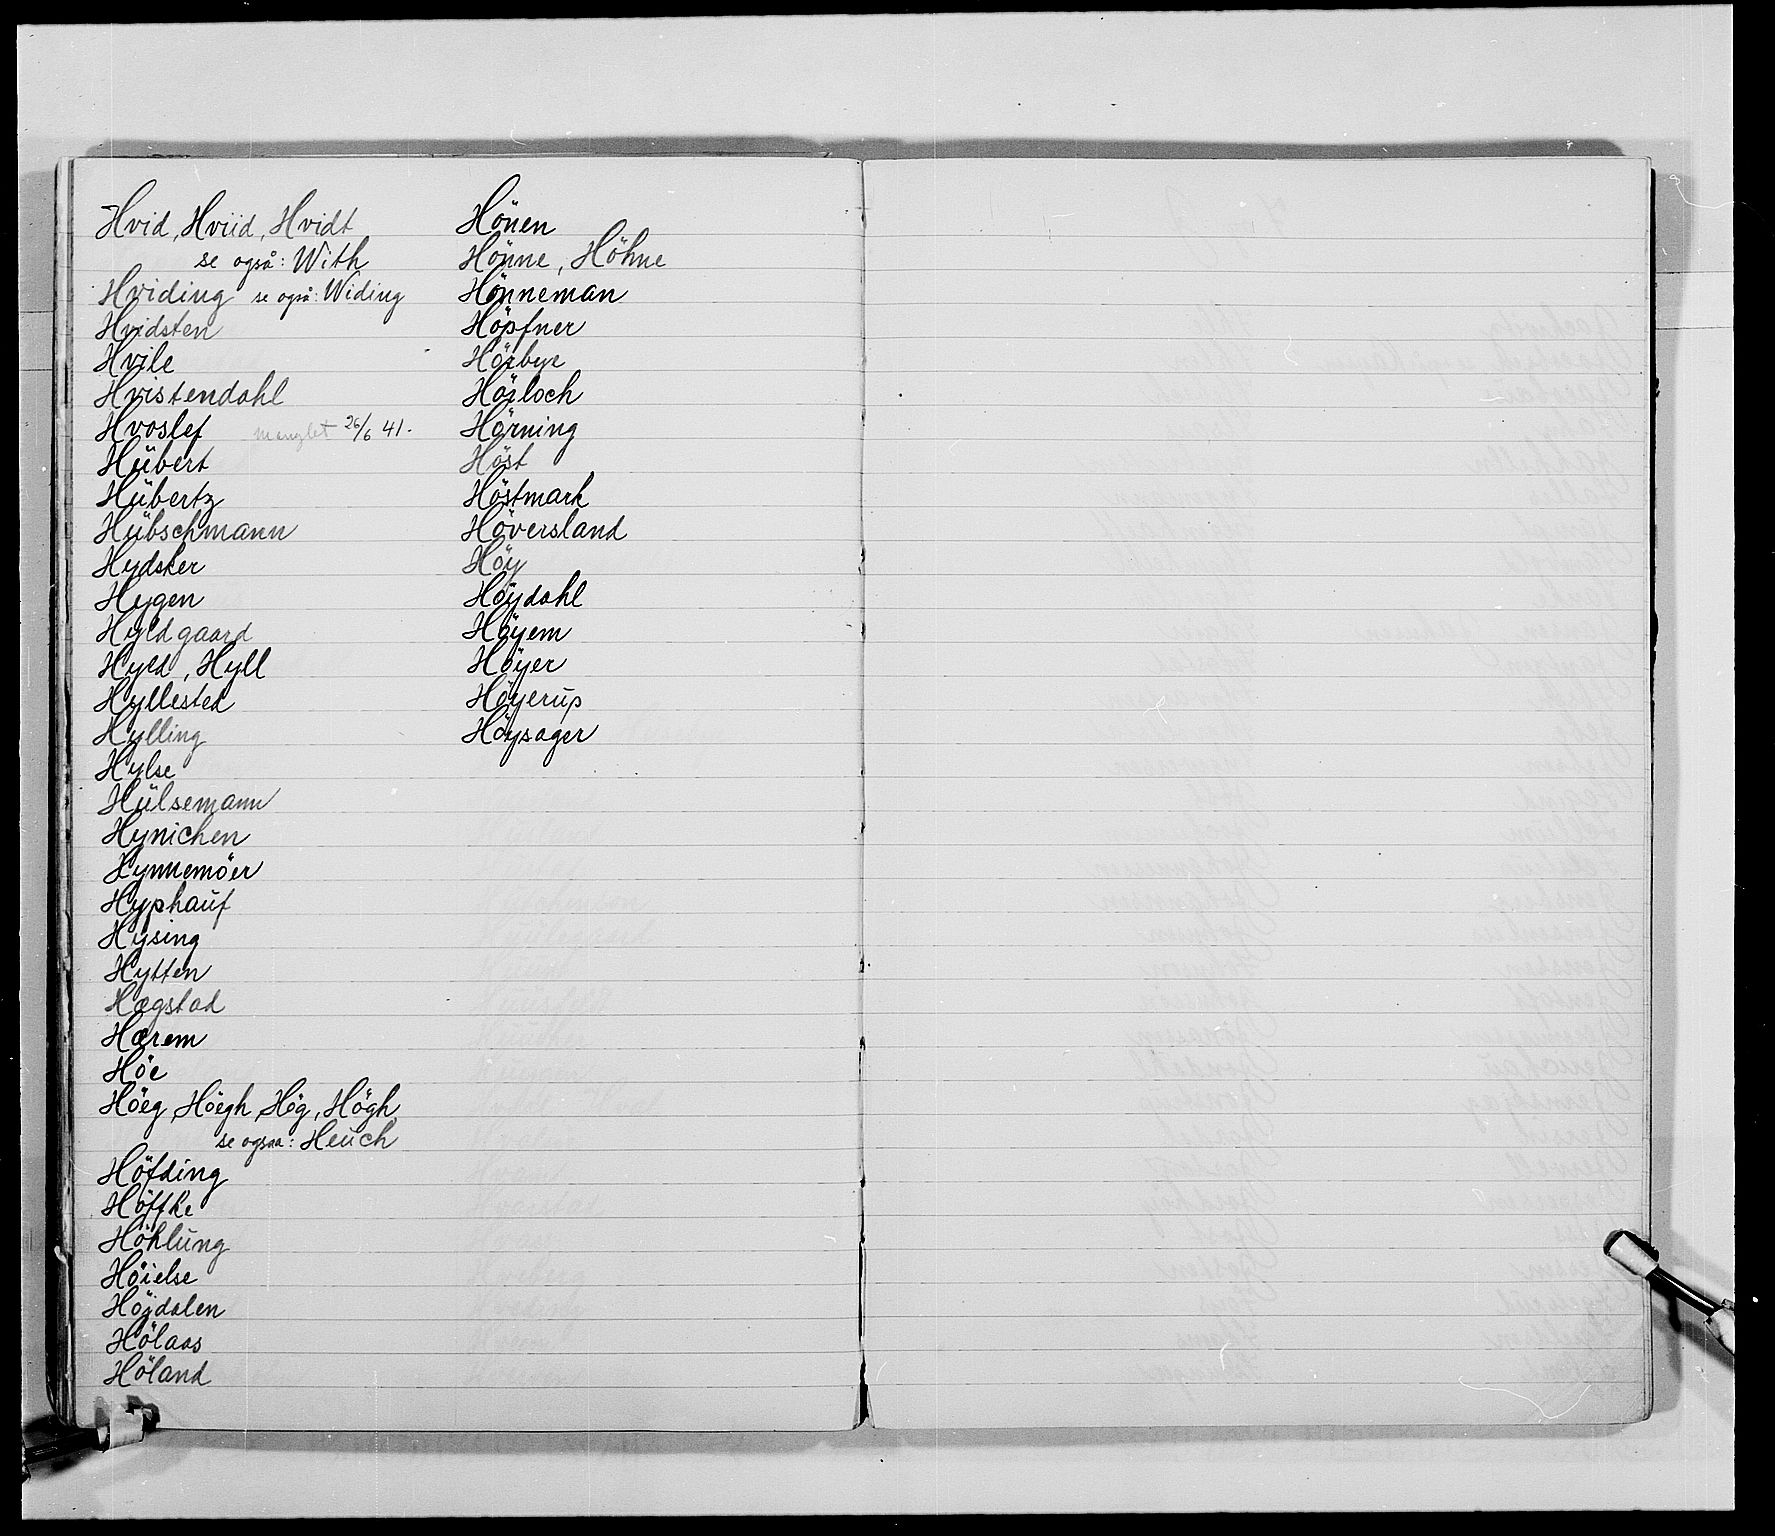 Hvid, Hviid, Hvidt
se også: With
Hviding se også: Widing
Hvidsten
Hvile
Hvistendahl
Hvoslef manglet 26/6 41.
Hübert
Hübertz
Hübschmann
Hydsker
Hygen
Hyldgaard
Hyld, Hyll
Hyllested
Hylling
Hylse
Hülsemann
Hynichen
Hynnemöer
Hyphauf
Hysing
Hytten
Hægstad
Hærem
Höe
Höeg, Höegh, Hög, Högh
se ogsaa: Heuch
Höfding
Höffke
Höhlung
Höielse
Höjdalen
Hölaas
Höland
Hönen
Hönne, Höhne
Hönneman
Höpfner
Hörbye
Hörloch
Hörning
Höst
Höstmark
Höversland
Höy
Höydahl
Höyem
Höyer
Höyerup
Höysager